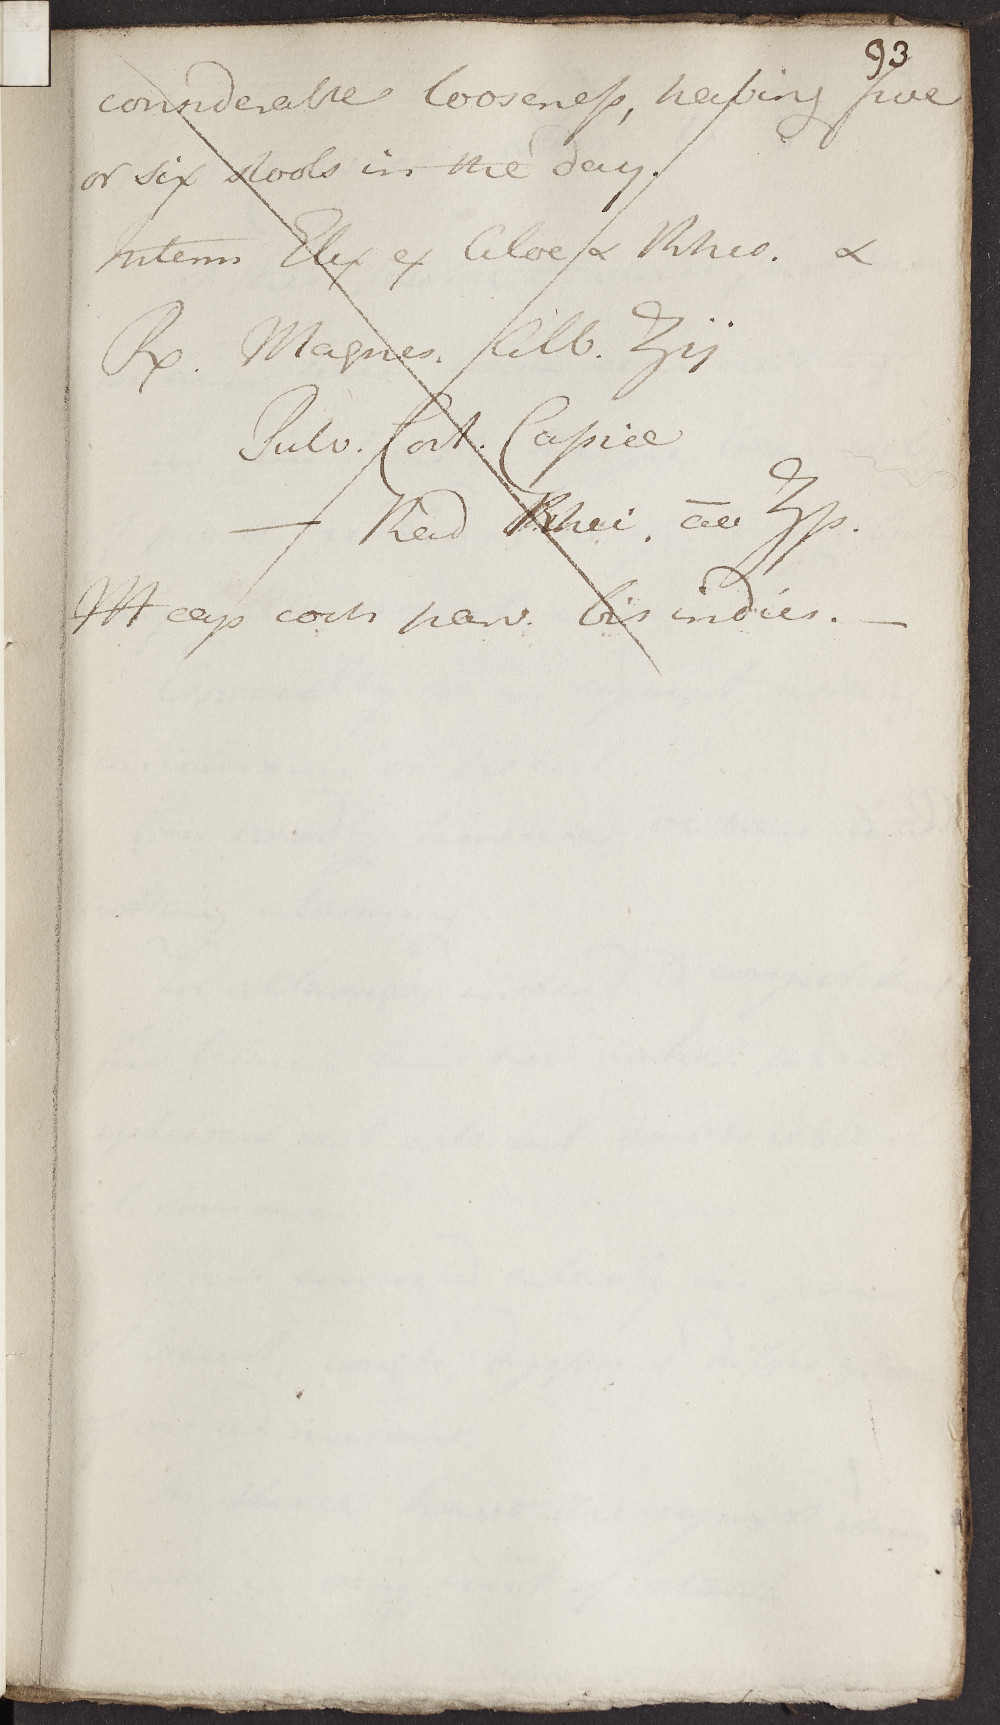 93
considerable looseneſs, having five
or six stools in the day.
Interm Elix ex Aloe & Rheo. &
Rx. Magnes. Alb. ʒij
Pulv. Cort. Capiee
— Rad Rhei. āa ʒſs.
M cap coch parv. bis indies. —